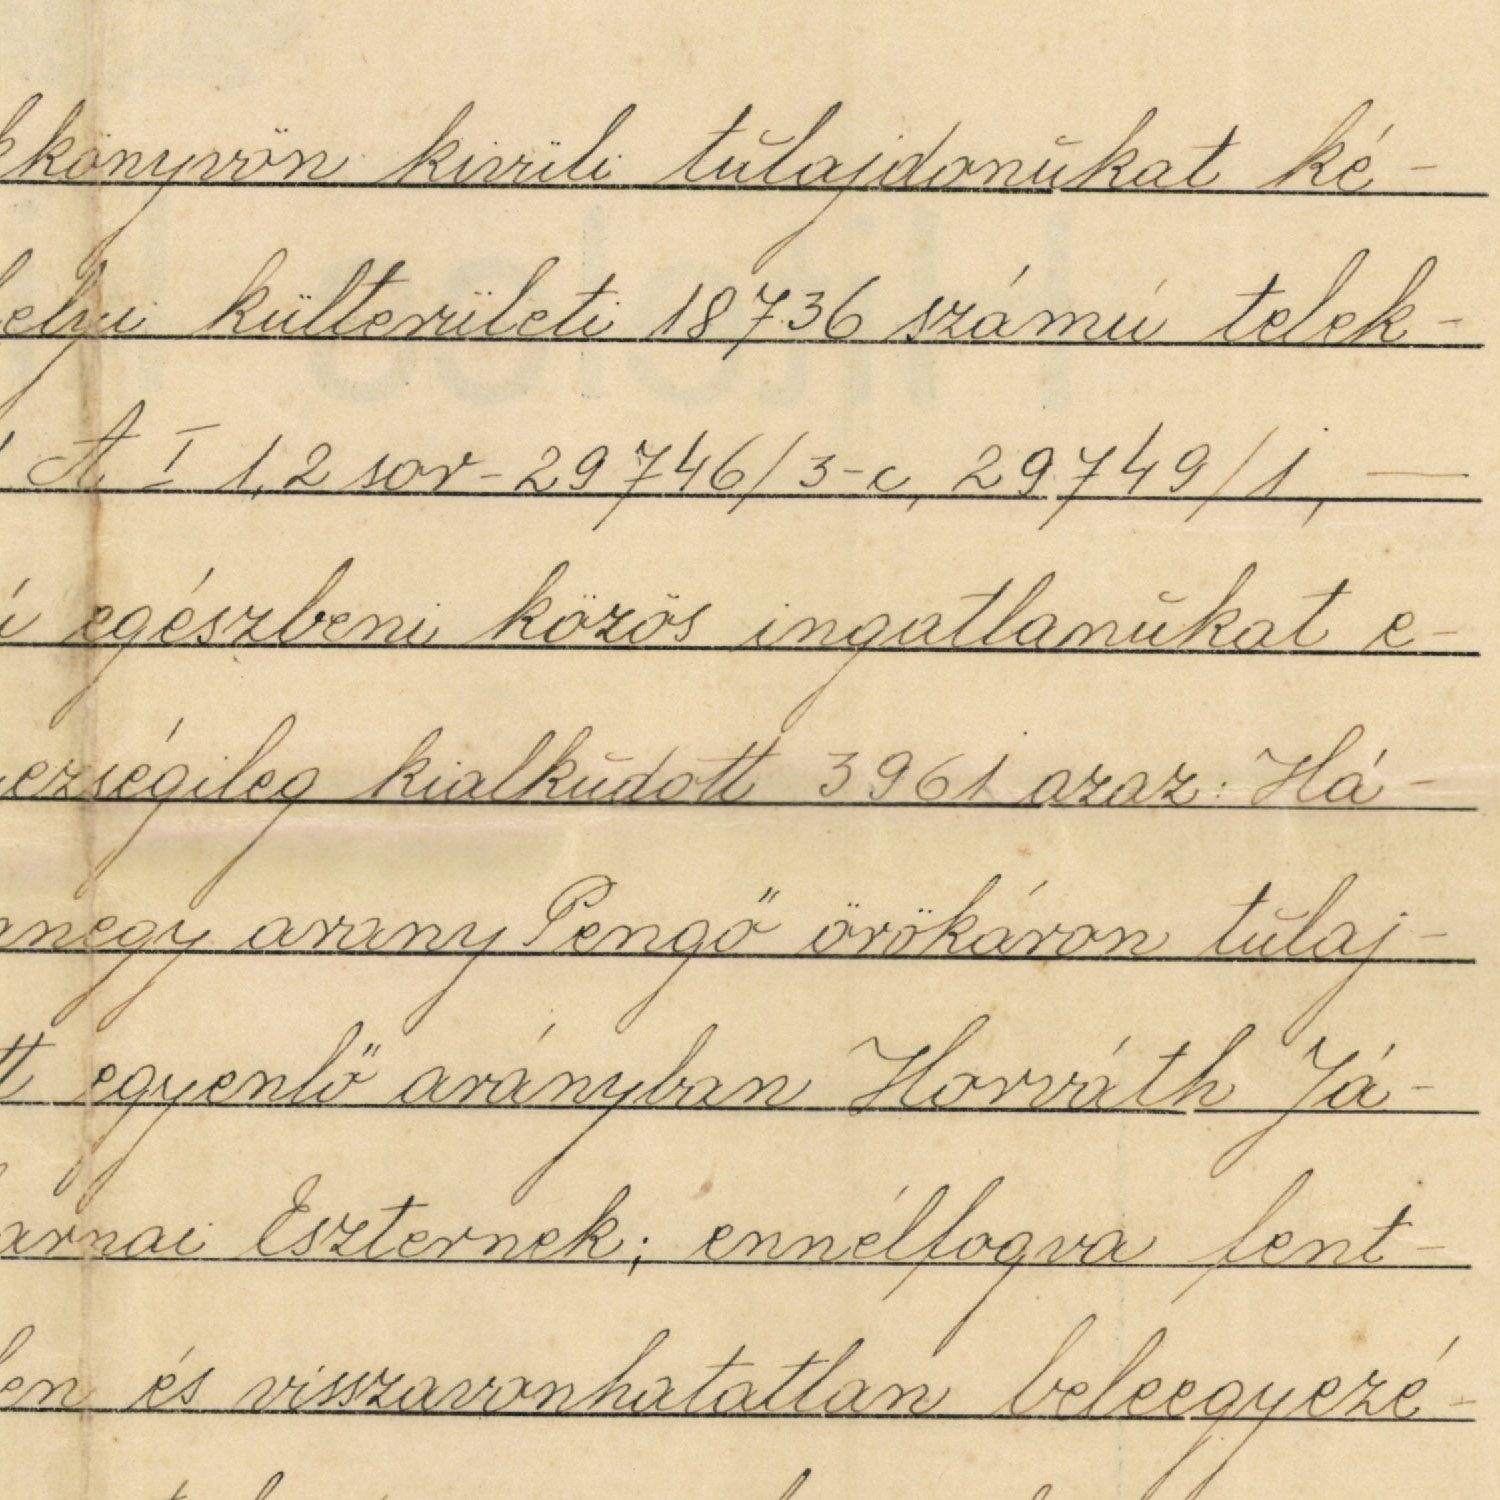 kkönyvön kivüli tulajdonukat ké-
helyi külterületi 18736 számú telek-
A I 1,2 sor-29746/3-c, 29749/1, —
i egészbeni közös ingatlanukat e-
ezségileg kialkudott 3961 azaz: Há-
nnegy arany Pengő örökáron tulaj-
tt egyenlő arányban Horváth Já-
arnai Eszternek; ennélfogva fent-
len és visszavonhatatlan beleegyezé-